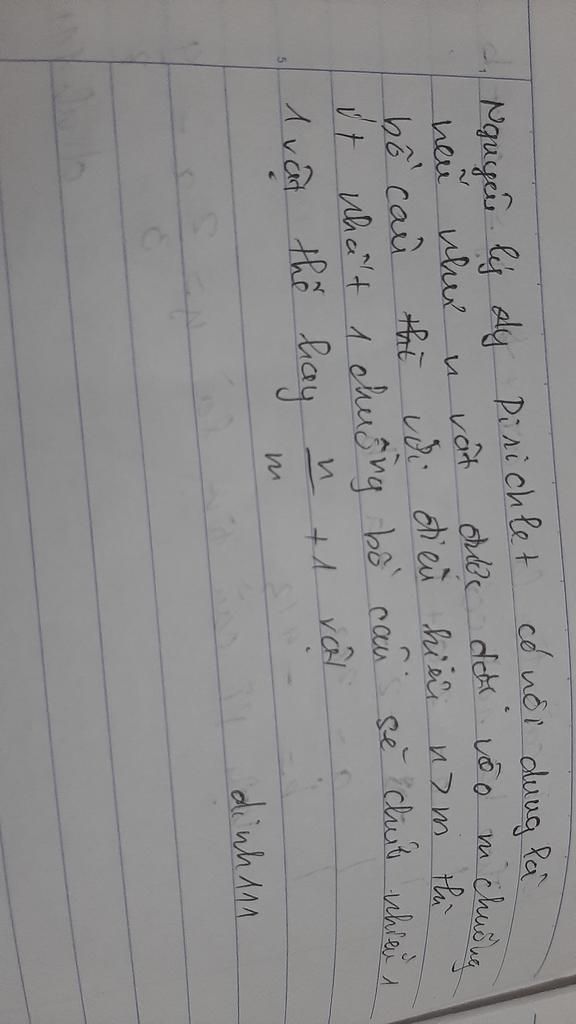 Nguyên lý dy Dirichlet có nội dung là
nếu như n vật được đặt vào m chuồng
bồ câu thì với điều kiện n > m thì
ít nhất 1 chuồng bồ câu sẽ chứa nhiều
1 vật thể hay n/m + 1 vật
dinh111